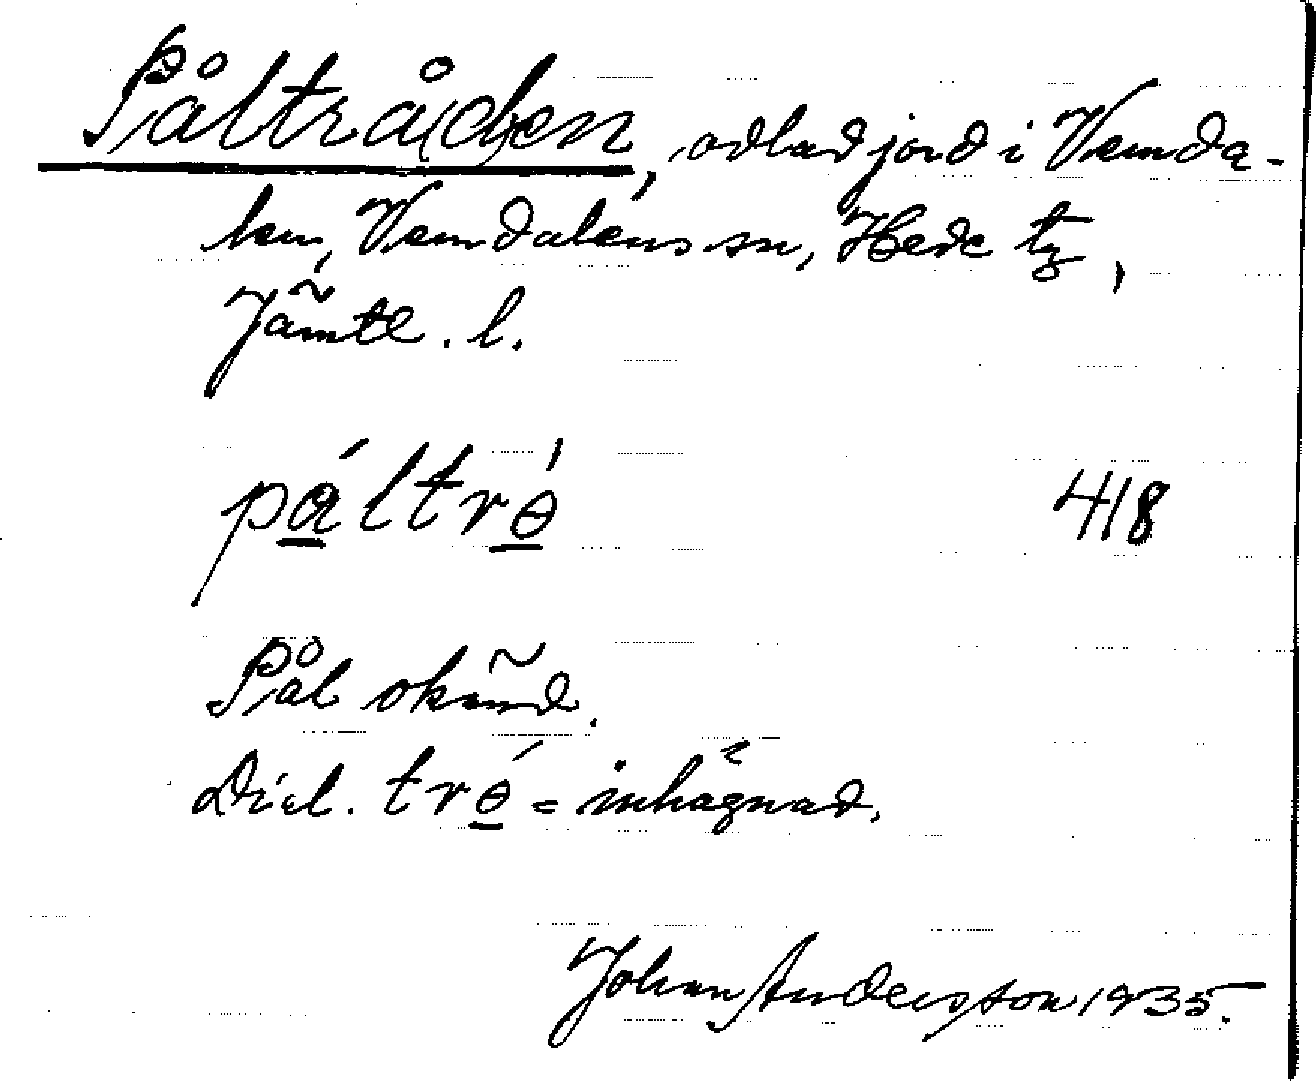 Påltrå(d)en, odlad jord i Vemda-
len, Vemdalens sn, Hede tg,
Jämtl. l.
páltrɵ́ 418
Pål okänd.
Dial. trɵ́ = inhägnad.
Johan Andersson 1935.